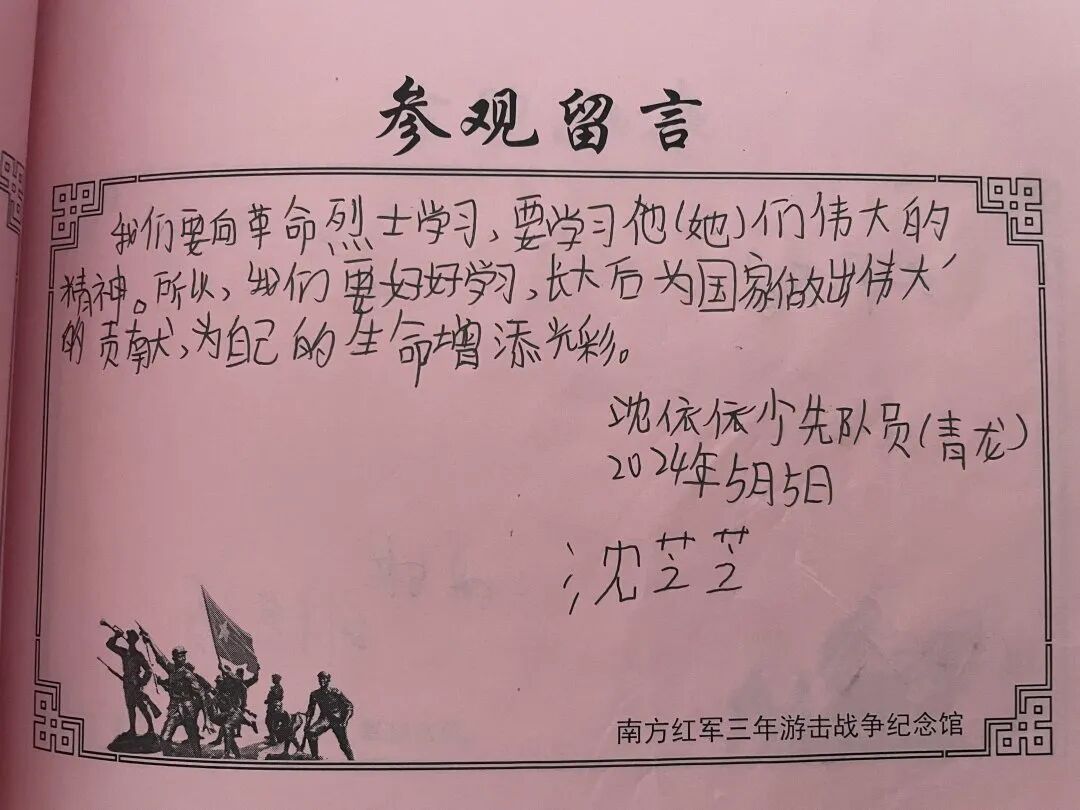 参观留言
我们要向革命烈士学习，要学习他(她)们伟大的
精神。所以，我们要好好学习，长大后为国家做出伟大
的贡献，为自己的生命增添光彩。
沈依依少先队员(青龙)
2024年5月5日
沈芝芝
南方红军三年游击战争纪念馆